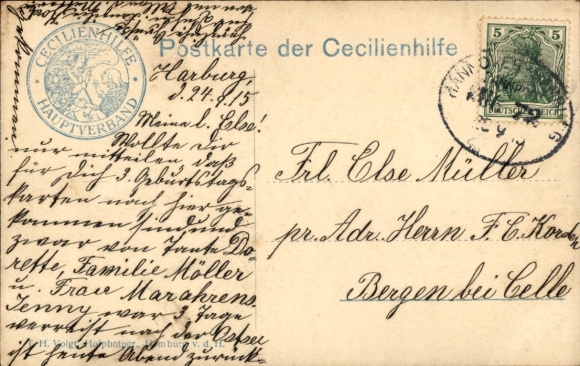 CECILIENHILFE
HAUPTVERBAND
Postkarte der Cecilienhilfe
5 5
DEUTSCHES REICH
HANNOVER
Harburg,
d. 24.8.15
Meine l. Else!
Wollte dir
nur mitteilen daß
für Dich 3 Geburtstags-
karten nach hier ge-
kommen sind, und
zwar von Tante Do-
rette, Familie Möller
u. Frau Marahrens.
Jenny war 3 Tage
verreist nach der Ostsee
ist heute Abend zurück-
Frl. Else Müller
pr. Adr. Herrn F. C. Korden
Bergen bei Celle
T. H. Voigt, Hofphotogr., Homburg v. d. H.